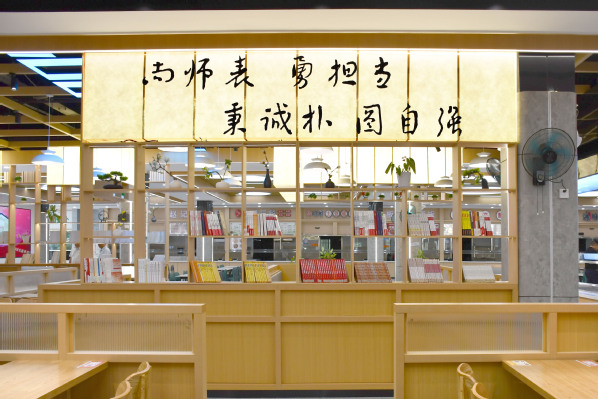 尚师表 勇担当
秉诚朴 图自强